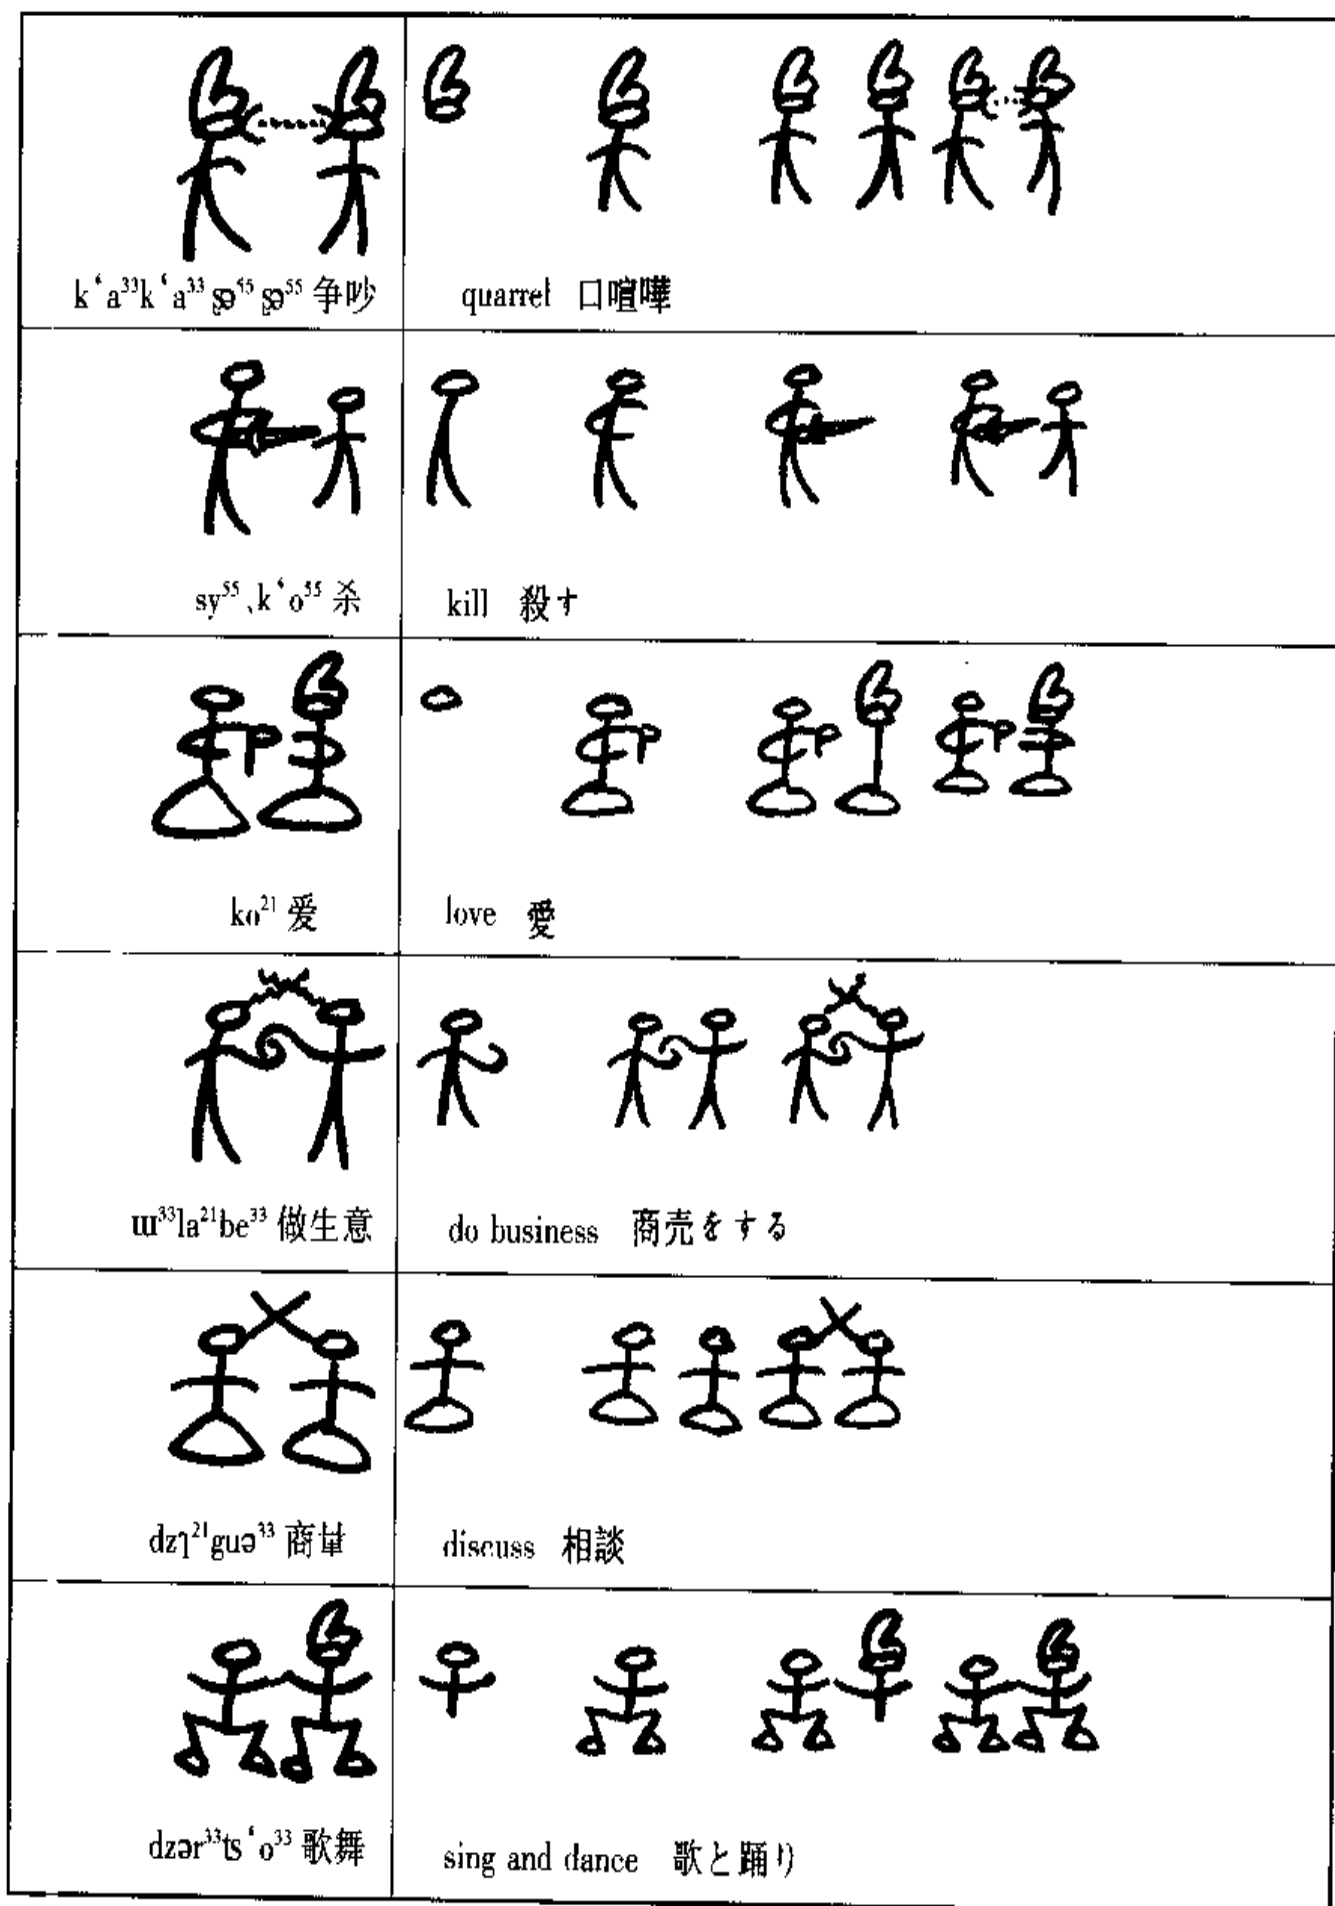 k‘a³³k‘a³³ʂə⁵⁵ʂə⁵⁵ 争吵 quarrel 口喧嘩
sy⁵⁵、k‘o⁵⁵ 杀 kill 殺す
ko²¹ 爱 love 愛
ɯ³³la²¹be³³ 做生意 do business 商売をする
dzʅ²¹guə³³ 商量 discuss 相談
dzər³³ts‘o³³ 歌舞 sing and dance 歌と踊り